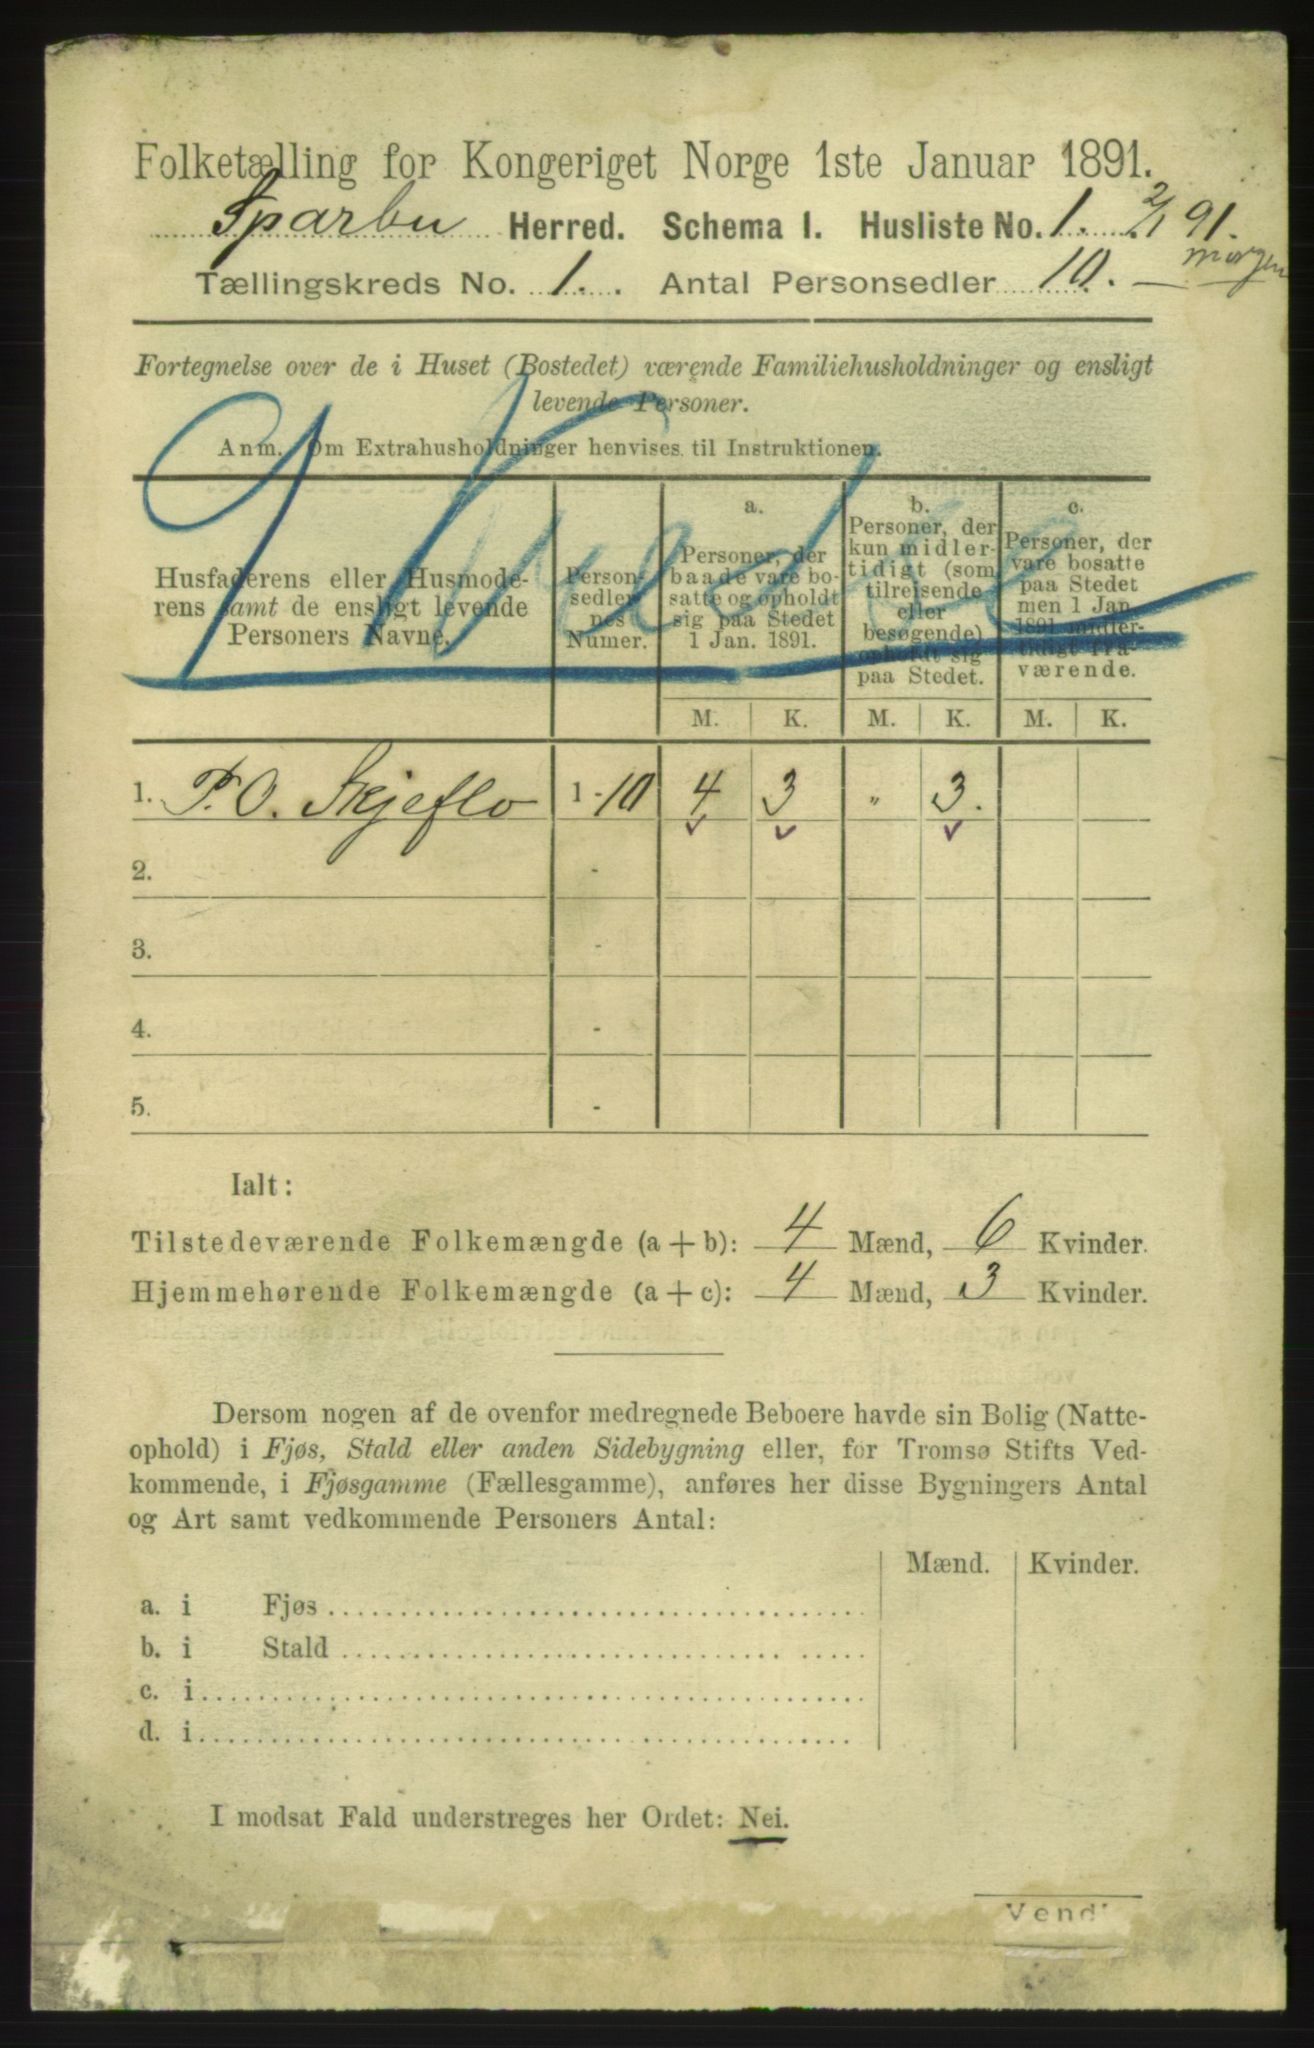 Folketælling for Kongeriget Norge 1ste Januar 1891.
Sparbu Herred. Schema I. Husliste No. 1. 2/1 91.
morgen
Tællingskreds No. 1. Antal Personsedler 10.
Fortegnelse over de i Huset (Bostedet) værende Familiehusholdninger og ensligt
levende Personer.
Anm. Om Extrahusholdninger henvises til Instruktionen.
1 Kreds
Husfaderens eller Husmode-
rens samt de ensligt levende
Personers Navne.
Person-
sedler-
nes
Numer.
a.
Personer, der
baade vare bo-
satte og opholdt
sig paa Stedet
1 Jan. 1891.
b.
Personer, der
kun midler-
tidigt (som
tilreisende
eller
besøgende)
opholdt sig
paa Stedet.
c.
Personer, der
vare bosatte
paa Stedet
men 1 Jan.
1891 midler-
tidigt fra-
værende.
M. K. M. K. M. K.
1. P. O. Skjeflo 1 - 10 4 3 " 3.
2. -
3. -
4. -
5. -
Ialt:
Tilstedeværende Folkemængde (a + b): 4 Mænd, 6 Kvinder.
Hjemmehørende Folkemængde (a + c): 4 Mænd, 3 Kvinder.
Dersom nogen af de ovenfor medregnede Beboere havde sin Bolig (Natte-
ophold) i Fjøs, Stald eller anden Sidebygning eller, for Tromsø Stifts Ved-
kommende, i Fjøsgamme (Fællesgamme), anføres her disse Bygningers Antal
og Art samt vedkommende Personers Antal:
Mænd. Kvinder.
a. i Fjøs
b. i Stald
c. i
d. i
I modsat Fald understreges her Ordet: Nei.
Vend!